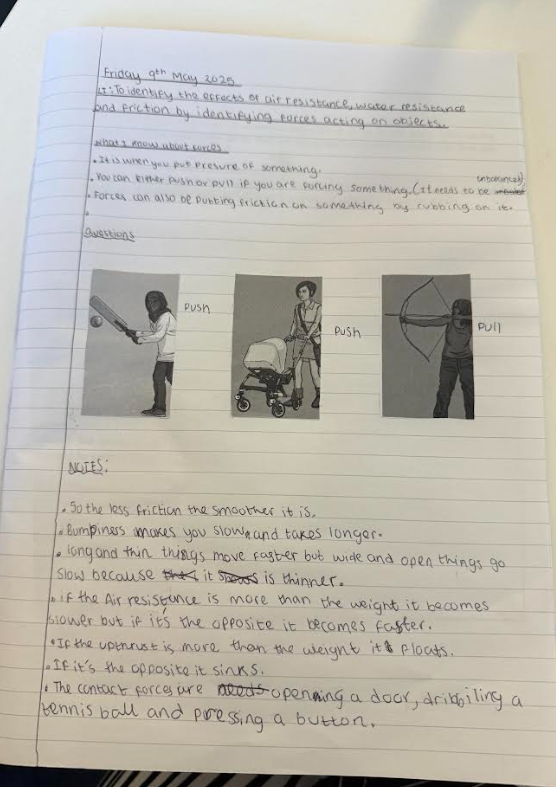 Friday 9th May 2025
LI: To identify the effects of air resistance, water resistance
and friction by identifying forces acting on objects.
What I know about forces
• It is when you put presure of something.
unbalanced)
• You can either push or pull if you are forcing something. (It needs to be
• Forces can also be putting friction on something by rubbing on it.
•
Questions
Push
Push
Pull
NOTES:
• So the less friction the smoother it is.
• Bumpiness makes you slow and takes longer.
• long and thin things move faster but wide and open things go
slow because it is thinner.
• if the Air resistance is more than the weight it becomes
slower but if it's the opposite it becomes faster.
• If the upthrust is more than the weight it floats.
• If it's the opposite it sinks.
• The contact forces are opening a door, dribbiling a
tennis ball and pressing a button.